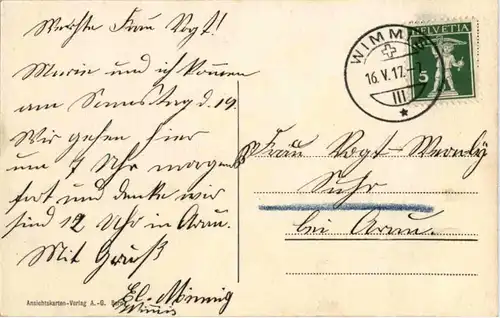 Werthe Frau Vogt!
Marie und ich kommen
am Samstag d. 19.
Wir gehen hier
um 7 Uhr morgens
fort und denke wir
sind 12 Uhr in Arau.
Mit Gruß
El. Minnig
Wimmis
Ansichtskarten-Verlag A.-G. Bern
HELVETIA
5
WIMMIS
16.V.17.-7
III
Frau Vogt-
Suhr
bei Arau.